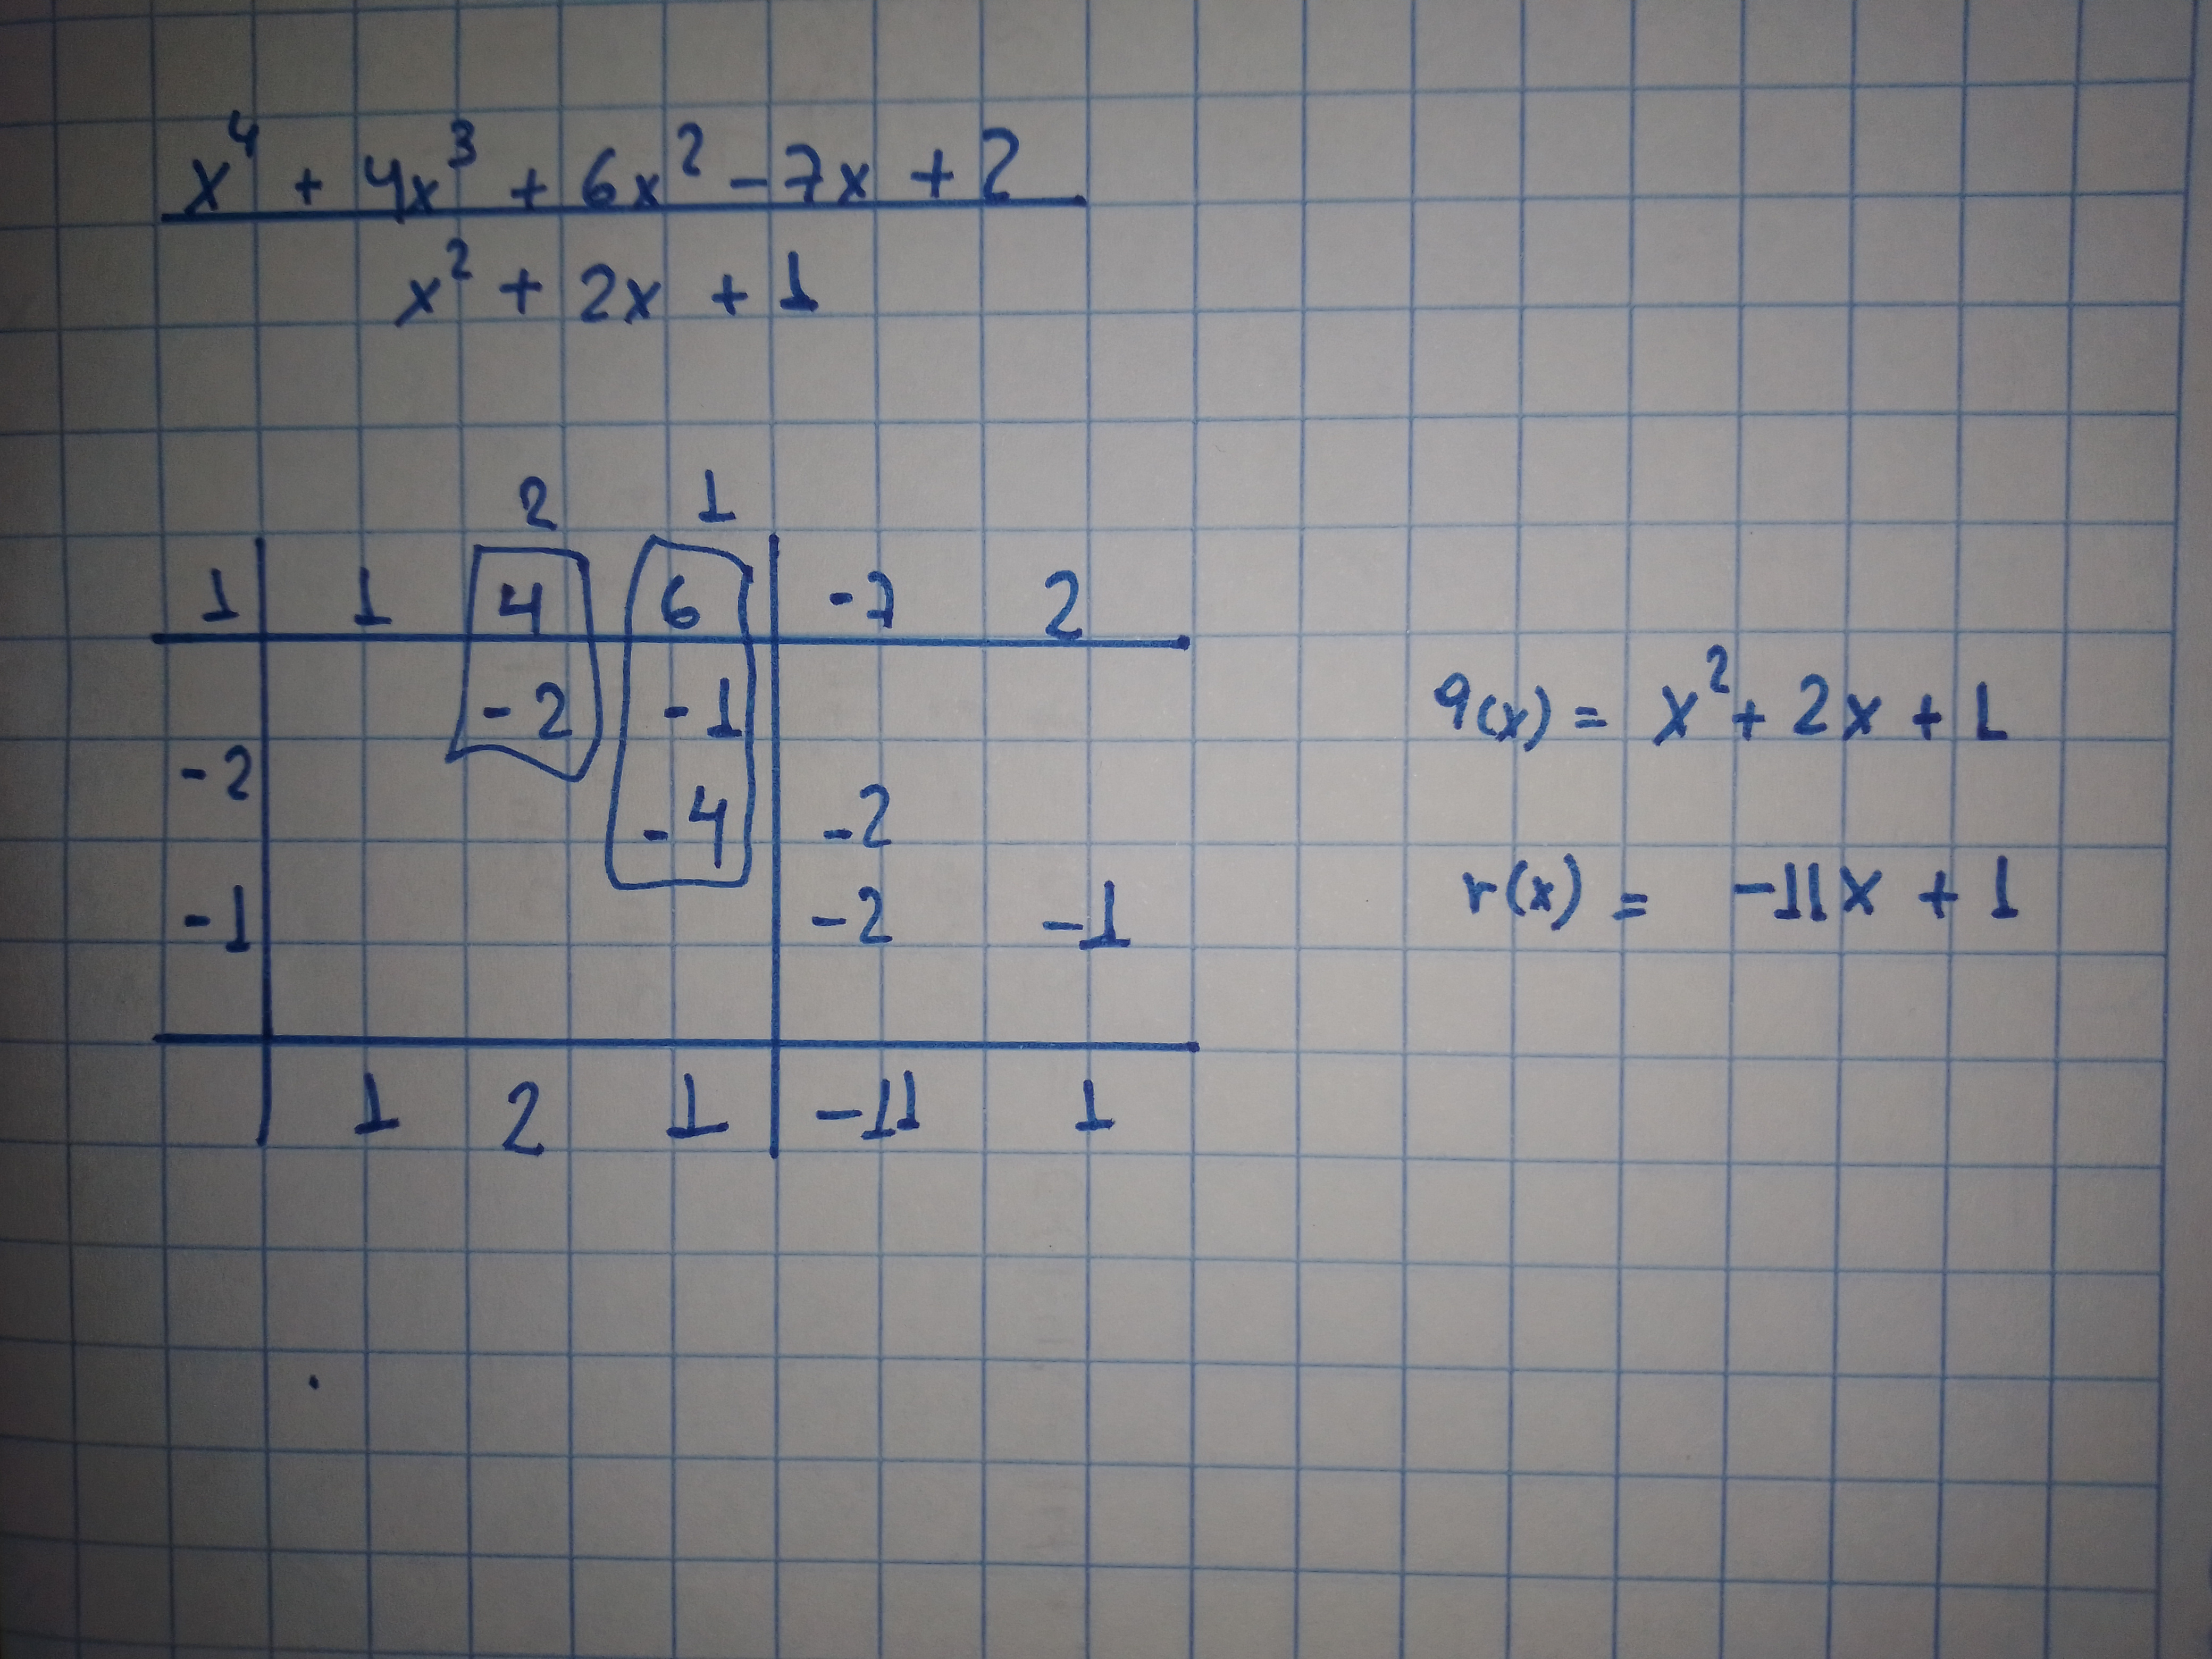 x⁴ + 4x³ + 6x² - 7x + 2
x² + 2x + 1
2 1
1 1 4 6 -7 2
-2 -1
-2
-4 -2
-1 -2 -1
1 2 1 -11 1
q(x) = x² + 2x + 1
r(x) = -11x + 1